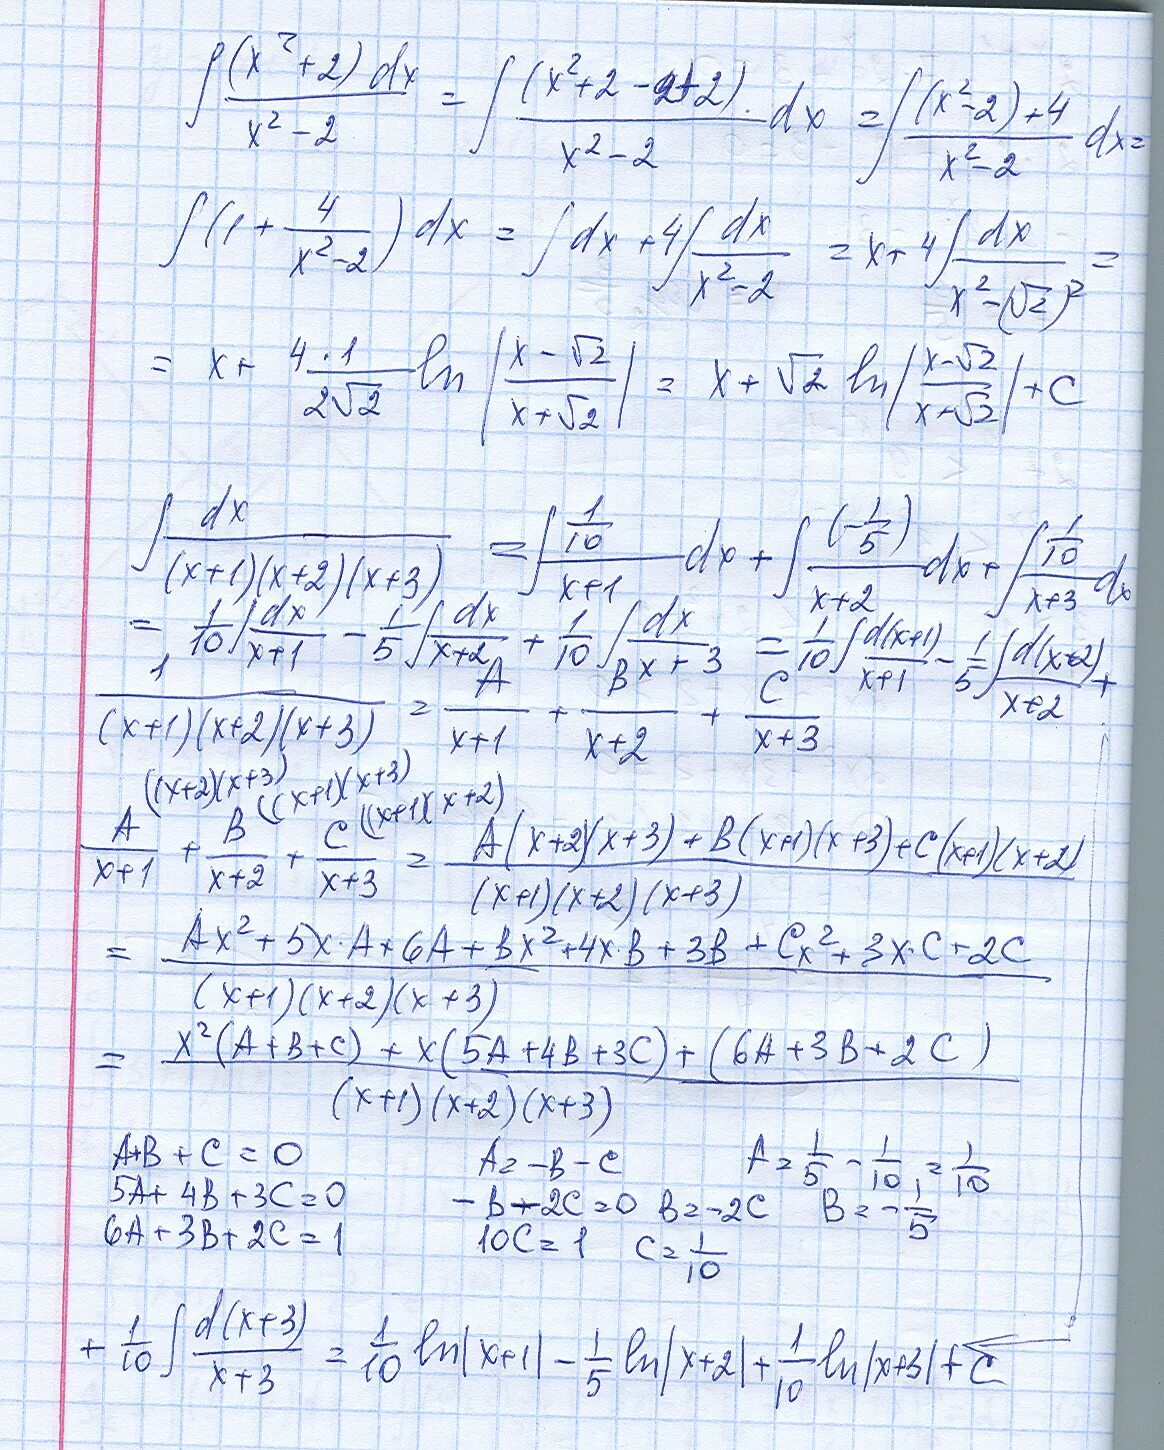 ∫ (x² + 2) dx / (x² − 2) = ∫ (x² + 2 − 2 + 2) / (x² − 2) dx = ∫ ((x² − 2) + 4) / (x² − 2) dx =
∫ (1 + 4/(x² − 2)) dx = ∫ dx + 4 ∫ dx/(x² − 2) = x + 4 ∫ dx/(x² − (√2)²) =
= x + (4 · 1)/(2√2) ln |(x − √2)/(x + √2)| = x + √2 ln |(x − √2)/(x + √2)| + C
∫ dx/((x+1)(x+2)(x+3)) = ∫ (1/10)/(x+1) dx + ∫ (−1/5)/(x+2) dx + ∫ (1/10)/(x+3) dx
= 1/10 ∫ dx/(x+1) − 1/5 ∫ dx/(x+2) + 1/10 ∫ dx/(x+3) = 1/10 ∫ d(x+1)/(x+1) − 1/5 ∫ d(x+2)/(x+2) +
1/((x+1)(x+2)(x+3)) = A/(x+1) + B/(x+2) + C/(x+3)
((x+2)(x+3) ((x+1)(x+3) ((x+1)(x+2)
A/(x+1) + B/(x+2) + C/(x+3) = (A(x+2)(x+3) + B(x+1)(x+3) + C(x+1)(x+2))/((x+1)(x+2)(x+3))
= (Ax² + 5x·A + 6A + Bx² + 4x·B + 3B + Cx² + 3x·C + 2C)/((x+1)(x+2)(x+3))
= (x²(A+B+C) + x(5A+4B+3C) + (6A+3B+2C))/((x+1)(x+2)(x+3))
A+B+C=0 A=−B−C A = 1/5 − 1/10 = 1/10
5A+4B+3C=0 −B−2C=0 B=−2C B = −1/5
6A+3B+2C=1 10C=1 C = 1/10
+ 1/10 ∫ d(x+3)/(x+3) = 1/10 ln|x+1| − 1/5 ln|x+2| + 1/10 ln|x+3| + C